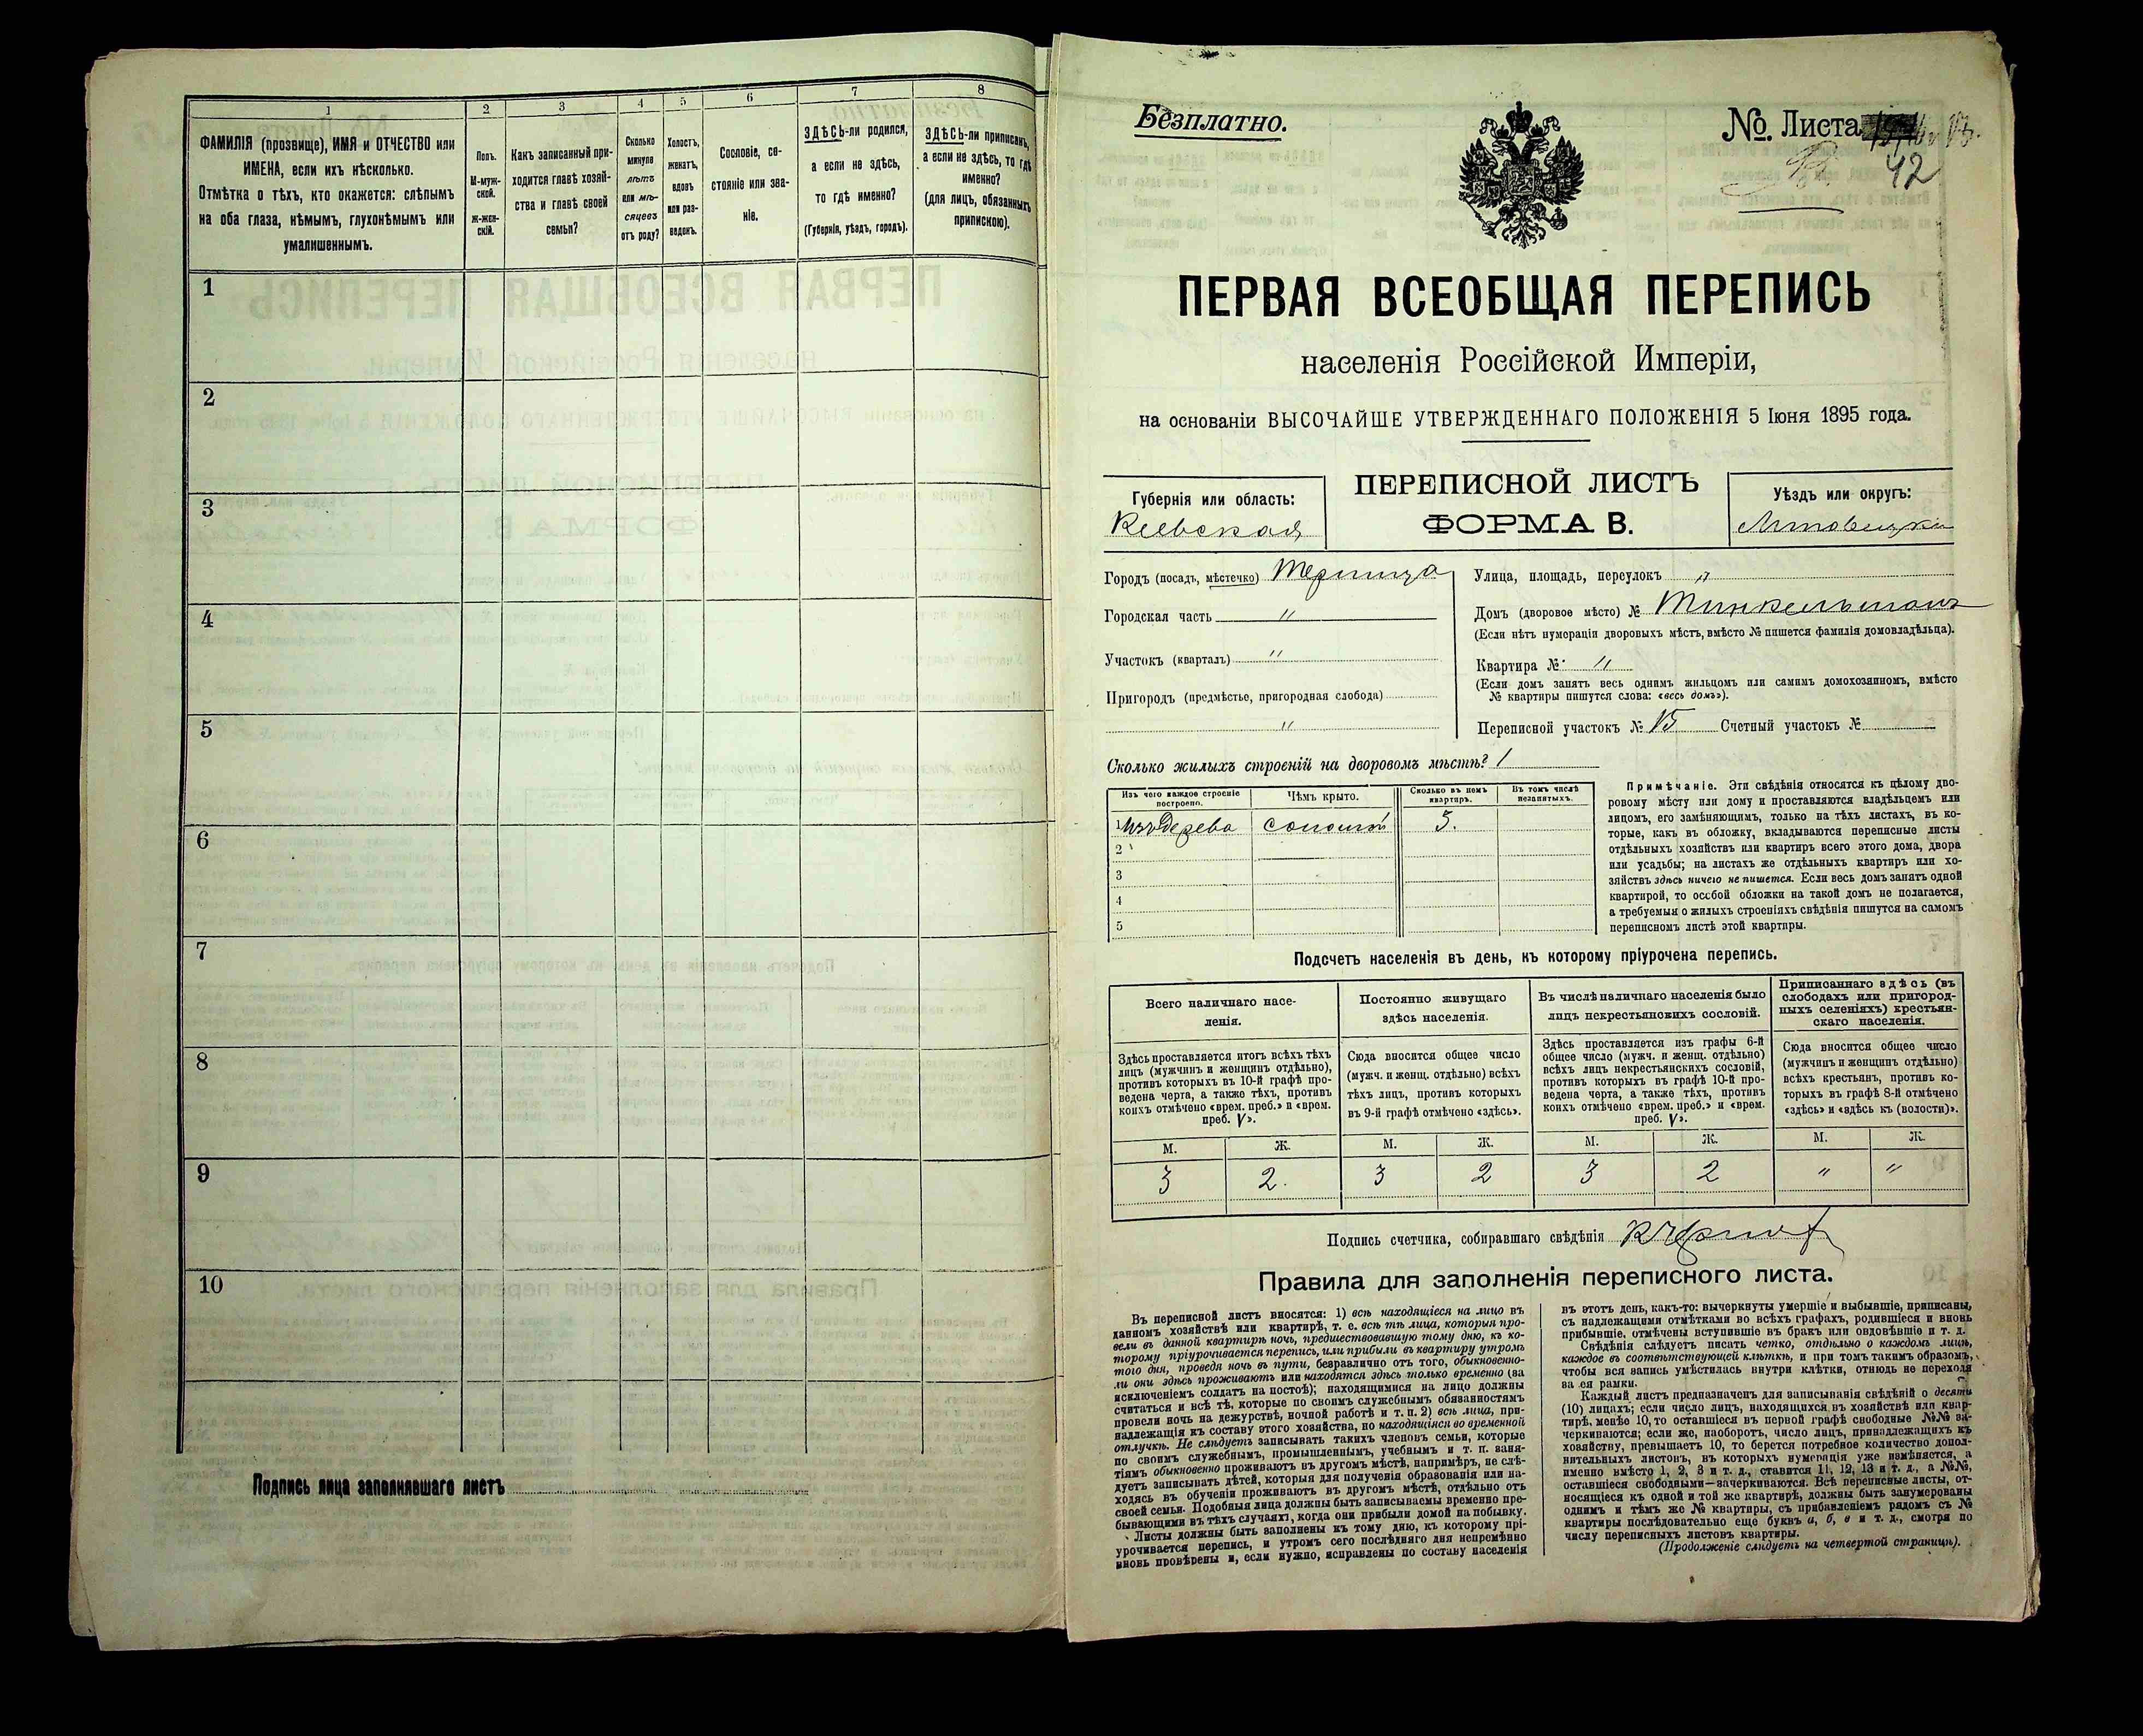 1 2 3 4 5 6 7 8
ФАМИЛІЯ (прозвище), ИМЯ и ОТЧЕСТВО или
ИМЕНА, если ихъ нѣсколько.
Отмѣтка о тѣхъ, кто окажется: слѣпымъ
на оба глаза, нѣмымъ, глухонѣмымъ или
умалишеннымъ.
Полъ.
М-муж-
ской.
Ж-жен-
скій.
Какъ записанный при-
ходится главѣ хозяй-
ства и главѣ своей
семьи?
Сколько
минуло
лѣтъ
или мѣ-
сяцевъ
отъ роду?
Холостъ,
женатъ,
вдовъ
или раз-
веденъ.
Сословіе, со-
стояніе или зва-
ніе.
ЗДѢСЬ-ли родился,
а если не здѣсь,
то гдѣ именно?
(Губернія, уѣздъ, городъ).
ЗДѢСЬ-ли приписанъ,
а если не здѣсь, то гдѣ
именно?
(для лицъ, обязанныхъ
припискою).
1
2
3
4
5
6
7
8
9
10
Подпись лица заполнявшаго листъ
Безплатно.
№ Листа
42
ПЕРВАЯ ВСЕОБЩАЯ ПЕРЕПИСЬ
населенія Россійской Имперіи,
на основаніи ВЫСОЧАЙШЕ УТВЕРЖДЕННАГО ПОЛОЖЕНІЯ 5 Іюня 1895 года.
Губернія или область:
Кіевская
ПЕРЕПИСНОЙ ЛИСТЪ
ФОРМА В.
Уѣздъ или округъ:
Городъ (посадъ, мѣстечко)
Городская часть "
Участокъ (кварталъ) "
Пригородъ (предмѣстье, пригородная слобода)
"
Улица, площадь, переулокъ "
Домъ (дворовое мѣсто) №
(Если нѣтъ нумераціи дворовыхъ мѣстъ, вмѣсто № пишется фамилія домовладѣльца).
Квартира № "
(Если домъ занятъ весь однимъ жильцомъ или самимъ домохозяиномъ, вмѣсто
№ квартиры пишутся слова: «весь домъ»).
Переписной участокъ № 15 Счетный участокъ №
Сколько жилыхъ строеній на дворовомъ мѣстѣ? 1
Изъ чего каждое строеніе
построено.
Чѣмъ крыто.
Сколько въ немъ
квартиръ.
Въ томъ числѣ
незанятыхъ.
1 изъ дерева соломой 5.
2
3
4
5
Примѣчаніе. Эти свѣдѣнія относятся къ цѣлому дво-
ровому мѣсту или дому и проставляются владѣльцемъ или
лицомъ, его замѣняющимъ, только на тѣхъ листахъ, въ ко-
торые, какъ въ обложку, вкладываются переписные листы
отдѣльныхъ хозяйствъ или квартиръ всего этого дома, двора
или усадьбы; на листахъ же отдѣльныхъ квартиръ или хо-
зяйствъ здѣсь ничего не пишется. Если весь домъ занятъ одной
квартирой, то особой обложки на такой домъ не полагается,
а требуемыя о жилыхъ строеніяхъ свѣдѣнія пишутся на самомъ
переписномъ листѣ этой квартиры.
Подсчетъ населенія въ день, къ которому пріурочена перепись.
Всего наличнаго насе-
ленія.
Постоянно живущаго
здѣсь населенія.
Въ числѣ наличнаго населенія было
лицъ некрестьянскихъ сословій.
Приписаннаго здѣсь (въ
слободахъ или пригород-
ныхъ селеніяхъ) крестьян-
скаго населенія.
Здѣсь проставляется итогъ всѣхъ тѣхъ
лицъ (мужчинъ и женщинъ отдѣльно),
противъ которыхъ въ 10-й графѣ про-
ведена черта, а также тѣхъ, противъ
коихъ отмѣчено «врем. преб.» и «врем.
преб. V».
Сюда вносится общее число
(мужч. и женщ. отдѣльно) всѣхъ
тѣхъ лицъ, противъ которыхъ
въ 9-й графѣ отмѣчено «здѣсь».
Здѣсь проставляется изъ графы 6-й
общее число (мужч. и женщ. отдѣльно)
всѣхъ лицъ некрестьянскихъ сословій,
противъ которыхъ въ графѣ 10-й про-
ведена черта, а также тѣхъ, противъ
коихъ отмѣчено «врем. преб.» и «врем.
преб. V».
Сюда вносится общее число
(мужчинъ и женщинъ отдѣльно)
всѣхъ крестьянъ, противъ ко-
торыхъ въ графѣ 8-й отмѣчено
«здѣсь» и «здѣсь къ (волости)».
М. Ж. М. Ж. М. Ж. М. Ж.
3 2. 3 2 3 2 " "
Подпись счетчика, собиравшаго свѣдѣнія
Правила для заполненія переписного листа.
Въ переписной листъ вносятся: 1) всѣ находящіеся на лицо въ
данномъ хозяйствѣ или квартирѣ, т. е. всѣ тѣ лица, которыя про-
вели въ данной квартирѣ ночь, предшествовавшую тому дню, къ ко-
торому пріурочивается перепись, или прибыли въ квартиру утромъ
того дня, проведя ночь въ пути, безразлично отъ того, обыкновенно-
ли они здѣсь проживаютъ или находятся здѣсь только временно (за
исключеніемъ солдатъ на постоѣ); находящимися на лицо должны
считаться и всѣ тѣ, которые по своимъ служебнымъ обязанностямъ
провели ночь на дежурствѣ, ночной работѣ и т. п. 2) всѣ лица, при-
надлежащія къ составу этого хозяйства, но находящіяся во временной
отлучкѣ. Не слѣдуетъ записывать такихъ членовъ семьи, которые
по своимъ служебнымъ, промышленнымъ, учебнымъ и т. п. заня-
тіямъ обыкновенно проживаютъ въ другомъ мѣстѣ, напримѣръ, не слѣ-
дуетъ записывать дѣтей, которыя для полученія образованія или на-
ходясь въ обученіи проживаютъ въ другомъ мѣстѣ, отдѣльно отъ
своей семьи. Подобныя лица должны быть записываемы временно пре-
бывающими въ тѣхъ случаяхъ, когда они прибыли домой на побывку.
Листы должны быть заполнены къ тому дню, къ которому прі-
урочивается перепись, и утромъ сего послѣдняго дня непремѣнно
вновь провѣрены и, если нужно, исправлены по составу населенія
въ этотъ день, какъ-то: вычеркнуты умершіе и выбывшіе, приписаны,
съ надлежащими отмѣтками во всѣхъ графахъ, родившіеся и вновь
прибывшіе, отмѣчены вступившіе въ бракъ или овдовѣвшіе и т. д.
Свѣдѣнія слѣдуетъ писать четко, отдѣльно о каждомъ лицѣ,
каждое въ соотвѣтствующей клѣткѣ, и при томъ такимъ образомъ,
чтобы вся запись умѣстилась внутри клѣтки, отнюдь не переходя
за ея рамки.
Каждый листъ предназначенъ для записыванія свѣдѣній о десяти
(10) лицахъ; если число лицъ, находящихся въ хозяйствѣ или квар-
тирѣ, менѣе 10, то оставшіеся въ первой графѣ свободные №№ за-
черкиваются; если же, наоборотъ, число лицъ, принадлежащихъ къ
хозяйству, превышаетъ 10, то берется потребное количество допол-
нительныхъ листовъ, въ которыхъ нумерація уже измѣняется, а
именно вмѣсто 1, 2, 3 и т. д., ставится 11, 12, 13 и т. д., а №№,
оставшіеся свободными—зачеркиваются. Всѣ переписные листы, от-
носящіеся къ одной и той же квартирѣ, должны быть занумерованы
однимъ и тѣмъ же № квартиры, съ прибавленіемъ рядомъ съ №
квартиры послѣдовательно еще буквъ а, б, в и т. д., смотря по
числу переписныхъ листовъ квартиры.
(Продолженіе слѣдуетъ на четвертой страницѣ).